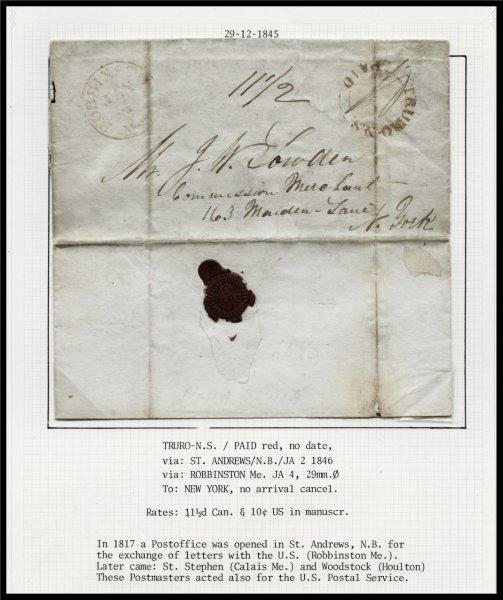 29-12-1845
11 1/2
PAID
TRURO-N.S.
Mr. J. W. Lowden
Commission Merchant
163 Maiden-Lane
N. York
TRURO-N.S. / PAID red, no date,
via: ST. ANDREWS/N.B./JA 2 1846
via: ROBBINSTON Me. JA 4, 29mm.Ø
To: NEW YORK, no arrival cancel.
Rates: 11½d Can. & 10¢ US in manuscr.
In 1817 a Postoffice was opened in St. Andrews, N.B. for
the exchange of letters with the U.S. (Robbinston Me.).
Later came: St. Stephen (Calais Me.) and Woodstock (Houlton)
These Postmasters acted also for the U.S. Postal Service.